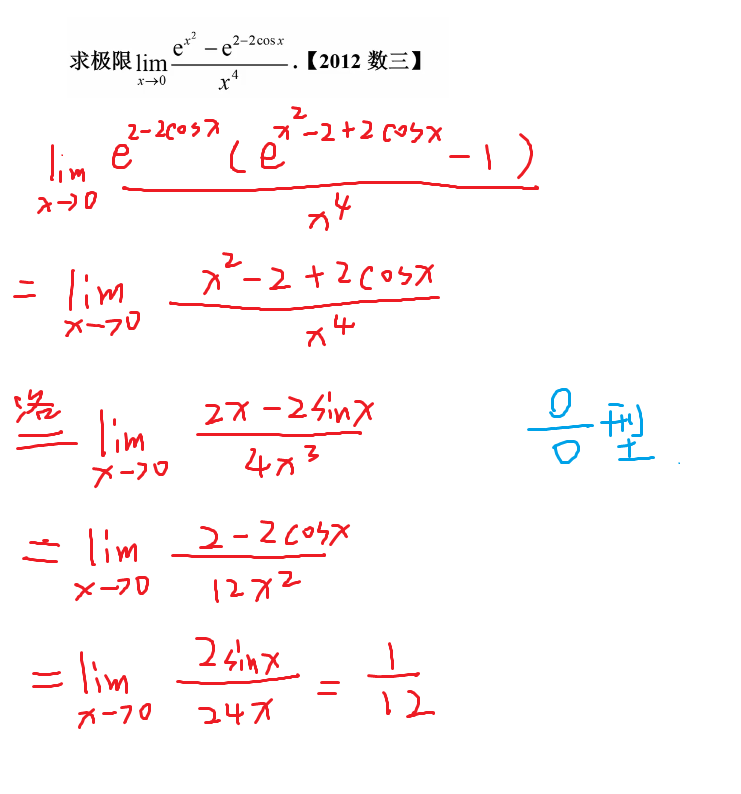 求极限 lim_{x→0} (e^{x^2} − e^{2−2cos x}) / x^4 .【2012 数三】
lim_{x→0} e^{2−2cosx} (e^{x^2−2+2cosx} − 1) / x^4
= lim_{x→0} (x^2−2+2cosx) / x^4
洛 = lim_{x→0} (2x−2sinx) / 4x^3 0/0 型
= lim_{x→0} (2−2cosx) / 12x^2
= lim_{x→0} 2sinx / 24x = 1/12